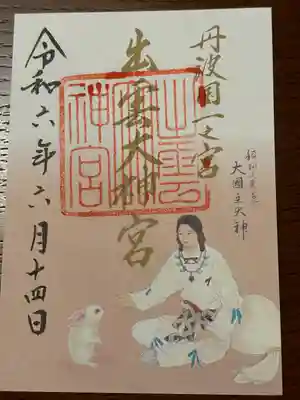 丹波國一之宮
大國主大神
出雲大神宮
出雲大神宮
令和六年六月十四日